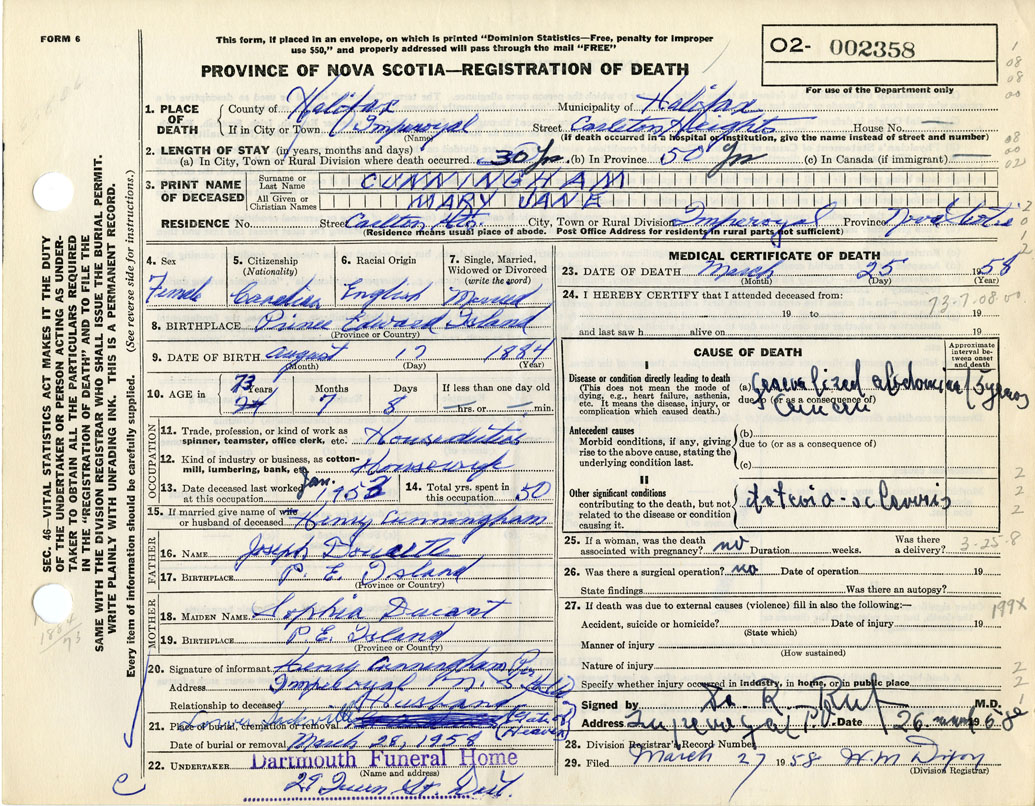 FORM 6
This form, if placed in an envelope, on which is printed "Dominion Statistics—Free, penalty for improper
use $50," and properly addressed will pass through the mail "FREE"
O2- 002358
For use of the Department only
PROVINCE OF NOVA SCOTIA—REGISTRATION OF DEATH
1. PLACE OF DEATH
County of Halifax Municipality of Halifax
If in City or Town Imperoyal Street Carlton Heights House No. —
(Name) (If death occurred in a hospital or institution, give the name instead of street and number)
2. LENGTH OF STAY (in years, months and days)
(a) In City, Town or Rural Division where death occurred 30 yrs (b) In Province 50 yrs (c) In Canada (if immigrant) —
3. PRINT NAME OF DECEASED
Surname or Last Name CUNNINGHAM
All Given or Christian Names MARY JANE
RESIDENCE No. Street Carlton Hts. City, Town or Rural Division Imperoyal Province Nova Scotia
(Residence means usual place of abode. Post Office Address for residents in rural parts not sufficient)
4. Sex Female
5. Citizenship (Nationality) Canadian
6. Racial Origin English
7. Single, Married, Widowed or Divorced (write the word) Married
8. BIRTHPLACE Prince Edward Island
(Province or Country)
9. DATE OF BIRTH August 17 1884
(Month) (Day) (Year)
10. AGE in 73 Years Months 7 Days 8 If less than one day old — hrs. or — min.
OCCUPATION
11. Trade, profession, or kind of work as spinner, teamster, office clerk, etc. Houseduties
12. Kind of industry or business, as cotton-mill, lumbering, bank, etc. Housewife
13. Date deceased last worked at this occupation Jan. 1953
14. Total yrs. spent in this occupation 50
15. If married give name of wife or husband of deceased Henry Cunningham
FATHER
16. NAME Joseph Doucette
17. BIRTHPLACE P. E. Island
(Province or Country)
MOTHER
18. MAIDEN NAME Sophia Durant
19. BIRTHPLACE P.E. Island
(Province or Country)
20. Signature of informant Henry Cunningham
Address Imperoyal N. S.
Relationship to deceased Husband
21. Place of burial, cremation or removal Lower Sackville (Gate of Heaven)
Date of burial or removal March 28, 1958
22. UNDERTAKER Dartmouth Funeral Home
(Name and address)
29 Queen St. Dart.
MEDICAL CERTIFICATE OF DEATH
23. DATE OF DEATH March 25 1958
(Month) (Day) (Year)
24. I HEREBY CERTIFY that I attended deceased from:
73-7-08-00
19 to 19
and last saw h alive on 19
CAUSE OF DEATH
Approximate interval between onset and death
I
Disease or condition directly leading to death
(This does not mean the mode of dying, e.g., heart failure, asthenia, etc. It means the disease, injury, or complication which caused death.)
(a) generalized abdominal cancer 5 years
due to (or as a consequence of)
Antecedent causes
Morbid conditions, if any, giving rise to the above cause, stating the underlying condition last.
(b)
due to (or as a consequence of)
(c)
II
Other significant conditions
contributing to the death, but not related to the disease or condition causing it.
25. If a woman, was the death associated with pregnancy? no Duration weeks. Was there a delivery? 3-25-8
26. Was there a surgical operation? no Date of operation 19
State findings Was there an autopsy?
27. If death was due to external causes (violence) fill in also the following:—
199X
Accident, suicide or homicide? Date of injury 19
(State which)
Manner of injury
(How sustained)
Nature of injury
Specify whether injury occurred in industry, in home, or in public place
Signed by M.D.
Address Imperoyal Date 26
28. Division Registrar's Record Number
29. Filed March 27 1958 W.M.
(Division Registrar)
SEC. 46—VITAL STATISTICS ACT MAKES IT THE DUTY
OF THE UNDERTAKER OR PERSON ACTING AS UNDER-
TAKER TO OBTAIN ALL THE PARTICULARS REQUIRED
IN THE "REGISTRATION OF DEATH" AND TO FILE THE
SAME WITH THE DIVISION REGISTRAR WHO SHALL ISSUE THE BURIAL PERMIT.
WRITE PLAINLY WITH UNFADING INK. THIS IS A PERMANENT RECORD.
Every item of information should be carefully supplied. (See reverse side for instructions.)
1884
73